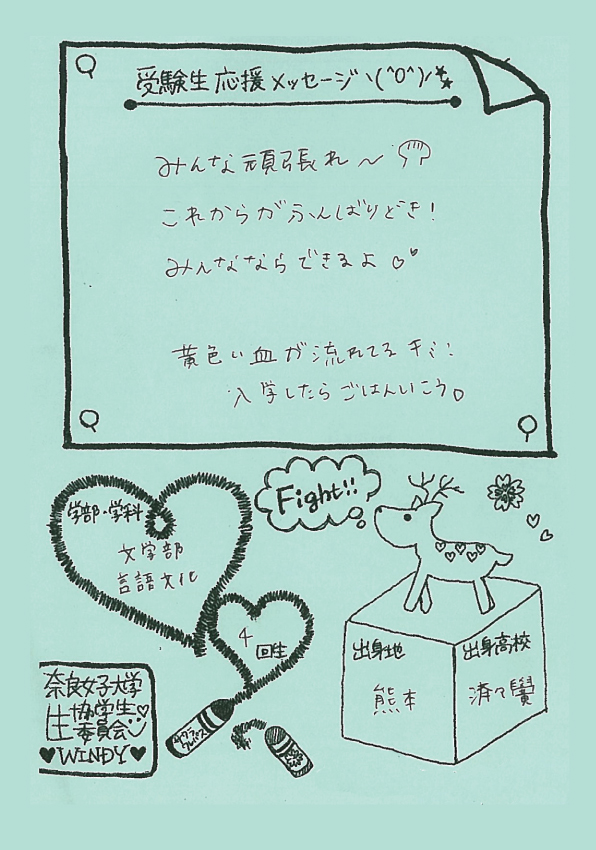 受験生応援メッセージヽ(^O^)ノ
みんな頑張れ～
これからがふんばりどき!
みんなならできるよ♡♥
黄色い血が流れてるキミ!
入学したらごはんいこう。
Fight!!
学部・学科
文学部
言語文化
4
回生
出身地
熊本
出身高校
済々黌
奈良女子大学
生協学生
委員会
♥WINDY♥
サクラ
クレパス